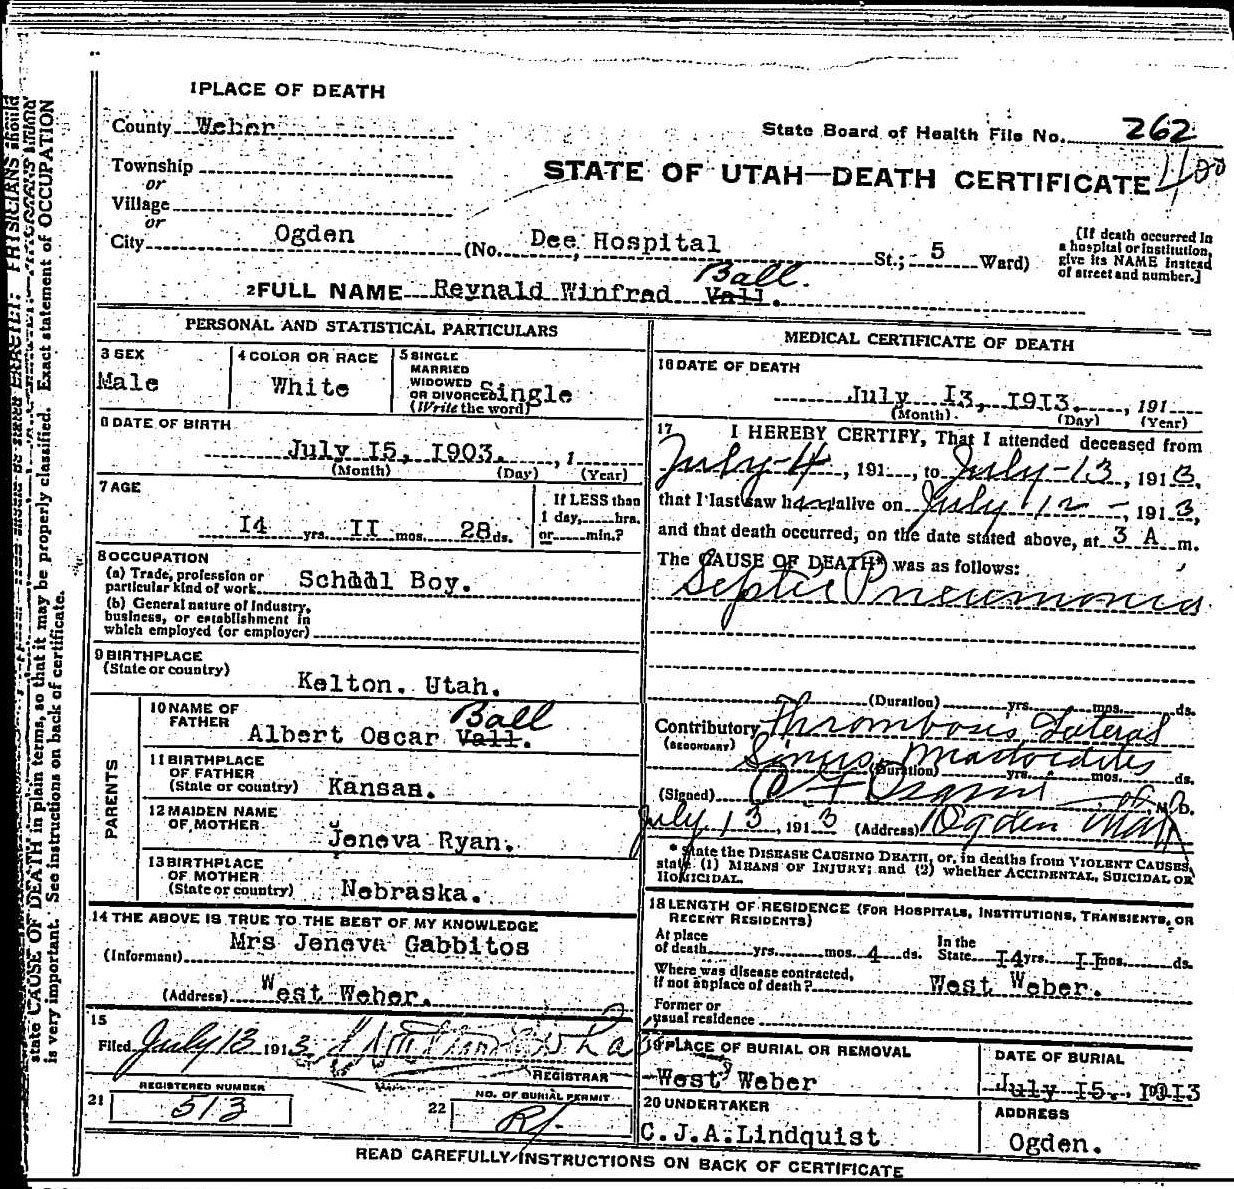 1 PLACE OF DEATH
County Weber
State Board of Health File No. 262
Township
or
STATE OF UTAH—DEATH CERTIFICATE
Village
or
City Ogden (No. Dee Hospital St.; 5 Ward)
(If death occurred in
a hospital or institution,
give its NAME instead
of street and number.]
Ball.
2 FULL NAME Reynald Winfred Vall.
PERSONAL AND STATISTICAL PARTICULARS
3 SEX
Male
4 COLOR OR RACE
White
5 SINGLE
MARRIED
WIDOWED
OR DIVORCED Single
(Write the word)
6 DATE OF BIRTH
July I5, I903. , 1
(Month) (Day) (Year)
7 AGE
I4 yrs. II mos. 28 ds.
If LESS than
1 day, hrs.
or min.?
8 OCCUPATION
(a) Trade, profession or
particular kind of work School Boy.
(b) General nature of Industry,
business, or establishment in
which employed (or employer)
9 BIRTHPLACE
(State or country)
Kelton. Utah.
PARENTS
10 NAME OF
FATHER
Ball
Albert Oscar Vall.
11 BIRTHPLACE
OF FATHER
(State or country) Kansas.
12 MAIDEN NAME
OF MOTHER
Jeneva Ryan.
13 BIRTHPLACE
OF MOTHER
(State or country) Nebraska.
14 THE ABOVE IS TRUE TO THE BEST OF MY KNOWLEDGE
(Informant) Mrs Jeneva Gabbitos
(Address) West Weber.
15
Filed July 13 1913
REGISTRAR
REGISTERED NUMBER
21 513
NO. OF BURIAL PERMIT
22
MEDICAL CERTIFICATE OF DEATH
16 DATE OF DEATH
July I3, I9I3. , 191
(Month) (Day) (Year)
17 I HEREBY CERTIFY, That I attended deceased from
July-4, 191 , to July-13, 1913,
that I last saw h alive on July 12-, 1913,
and that death occurred, on the date stated above, at 3 A m.
The CAUSE OF DEATH* was as follows:
Septic Pneumonia
(Duration) yrs. mos. ds.
Contributory Thrombosis Lateral
(SECONDARY) Sinus, Mastoiditis
(Duration) yrs. mos. ds.
(Signed) M.D.
July 13, 1913 (Address) Ogden
* State the DISEASE CAUSING DEATH, or, in deaths from VIOLENT CAUSES,
state (1) MEANS OF INJURY; and (2) whether ACCIDENTAL, SUICIDAL OR
HOMICIDAL.
18 LENGTH OF RESIDENCE (FOR HOSPITALS, INSTITUTIONS, TRANSIENTS, OR
RECENT RESIDENTS)
At place
of death yrs. mos. 4 ds.
In the
State I4 yrs. II mos. ds.
Where was disease contracted,
If not at place of death? West Weber.
Former or
usual residence
19 PLACE OF BURIAL OR REMOVAL
West Weber
DATE OF BURIAL
July I5. 1913
20 UNDERTAKER
C.J.A.Lindquist
ADDRESS
Ogden.
READ CAREFULLY INSTRUCTIONS ON BACK OF CERTIFICATE
state CAUSE OF DEATH in plain terms, so that it may be properly classified. Exact statement of OCCUPATION
is very important. See instructions on back of certificate.